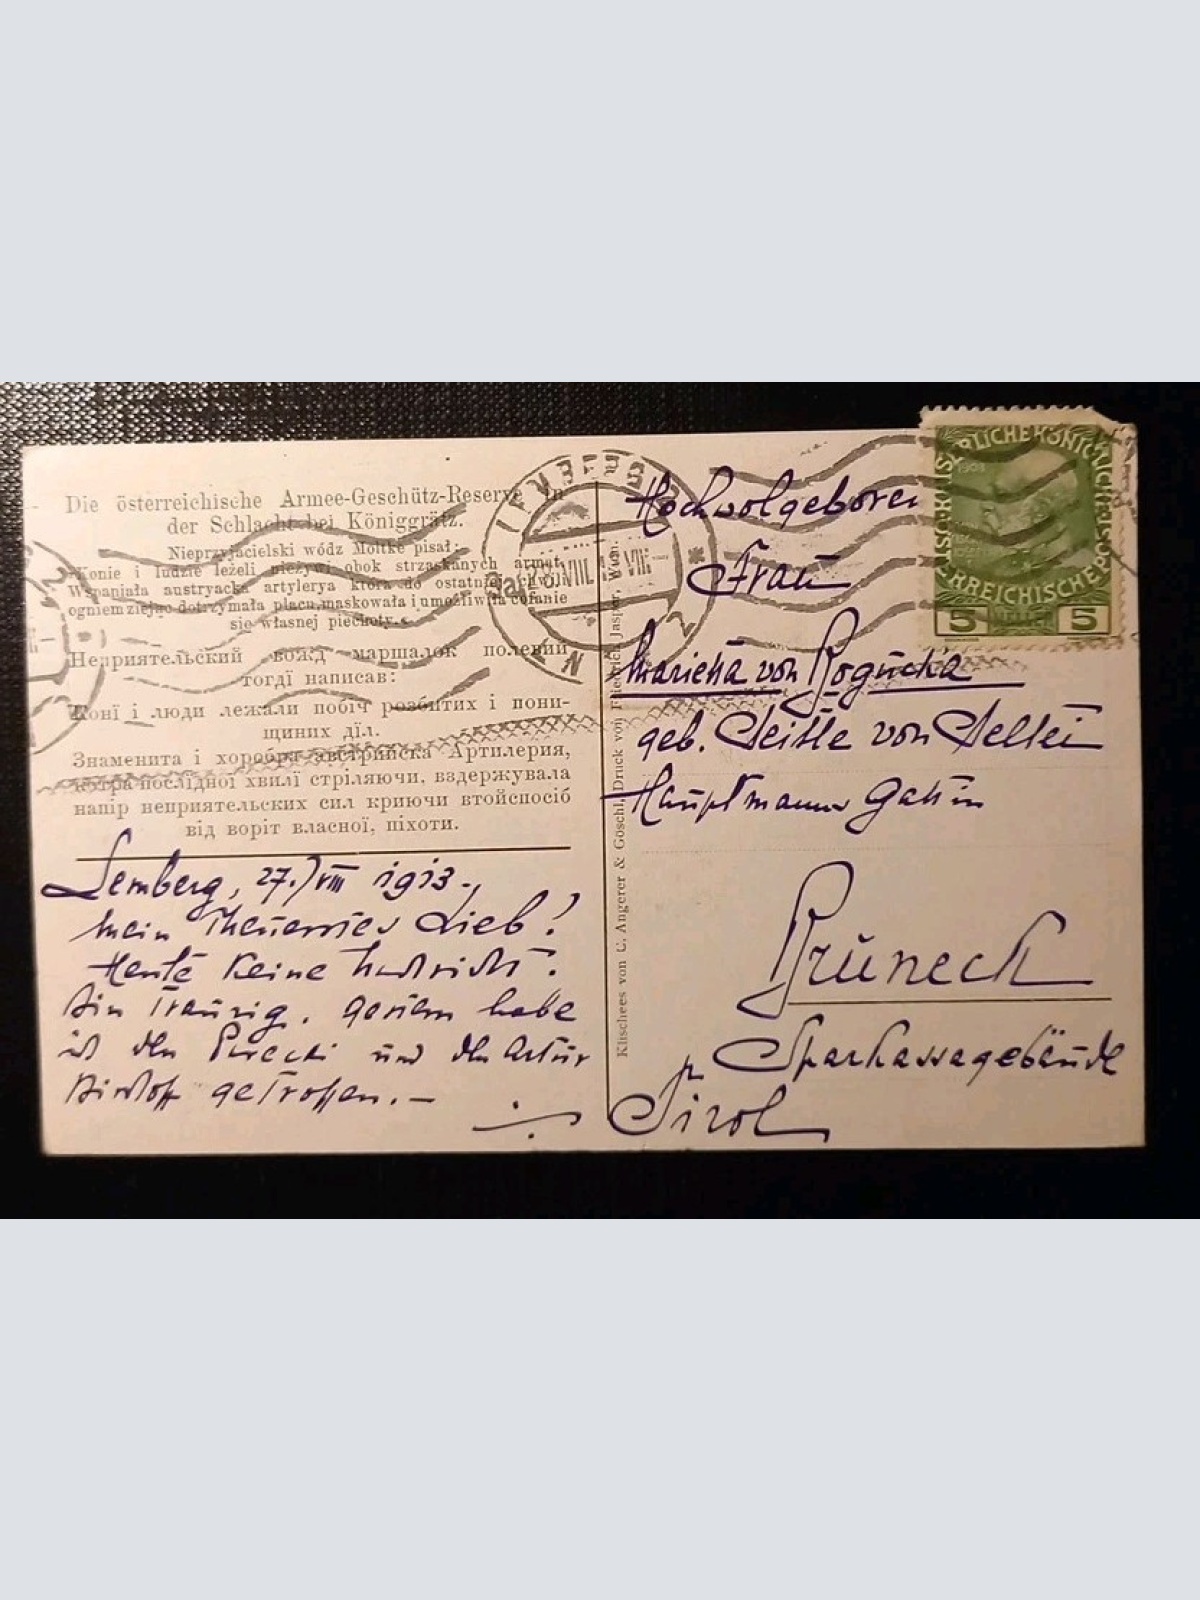 Die österreichische Armee-Geschütz-Reserve in
der Schlacht bei Königgrätz.
Nieprzyjacielski wódz Moltke pisał:
„Konie i ludzie leżeli nieżywi obok strzaskanych armat.
Wspaniała austryacka artylerya która do ostatniej chwili
ogniem ziejąc dotrzymała placu, maskowała i umożliwiła cofanie
się własnej piechoty."
Неприятельский вожд маршалок полевий
тогдї написав:
Конї і люди лежали побіч розбитих і пони-
щиних дїл.
Знаменита і хоробра австрийска Артилерия,
котра послїдної хвилї стріляючи, вздержувала
напір неприятельских сил криючи втойспосіб
від воріт власної, піхоти.
Lemberg, 27./VIII 1913.
Mein Theuerstes Lieb!
Heute keine Nachricht.
Bin traurig. Gestern habe
ich den und den Artur
getroffen. —
Klischees von C. Angerer & Göschl, Druck von Friedrich Jasper, Wien.
Hochwolgeboren
Frau
Marietta von Rogucka
geb. von
Hauptmanns Gattin
Bruneck
Sparkassagebäude
Tirol
KAISERLICHE KÖNIGLICHE ÖSTERREICHISCHE POST
1908
5 HELLER 5